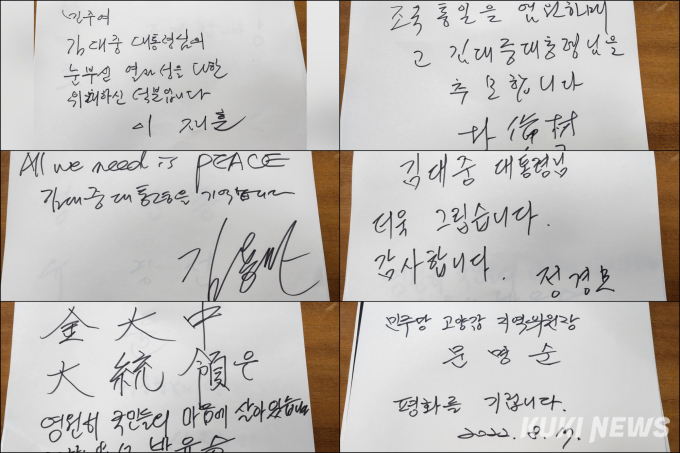 민주여
김대중 대통령님의
눈부신
위대하신 덕분입니다
이 재훈
조국 통일을 염원하며
고 김대중대통령님을
추모합니다
All we need is PEACE
김대중 대통령을 기억합니다
김대중 대통령님
더욱 그립습니다.
감사합니다.
정경모
金大中
大統領은
영원히 국민들의 마음에 살아있습니다
민주당 고양갑 지역위원장
문명순
평화를 기립니다.
2022. 8. 7.
KUKI NEWS